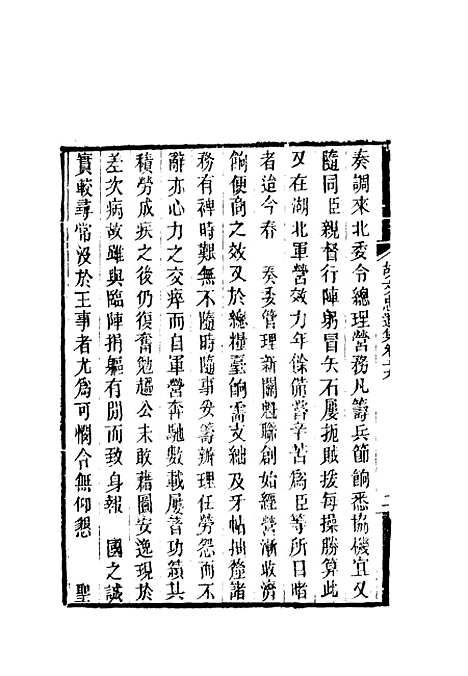 奏調來北委令總理營務凡籌兵節餉悉協機宜又
隨同臣親督行陣躬冒矢石屢扼賊援每操勝算此
又在湖北軍營效力年餘備嘗辛苦爲臣等所目睹
者迨今春 奏委管理新關魁聯創始經營漸收濟
餉便商之效又於總糧臺餉需支絀及牙帖抽釐諸
務有裨時艱無不隨時隨事妥籌辦理任勞怨而不
辭亦心力之交瘁而自軍營奔馳數載屢著功績其
積勞成疾之後仍復奮勉趨公未敢藉圖安逸現於
差次病故雖與臨陣捐軀有間而致身報 國之誠
實較尋常沒於王事者尤爲可憫合無仰懇 聖